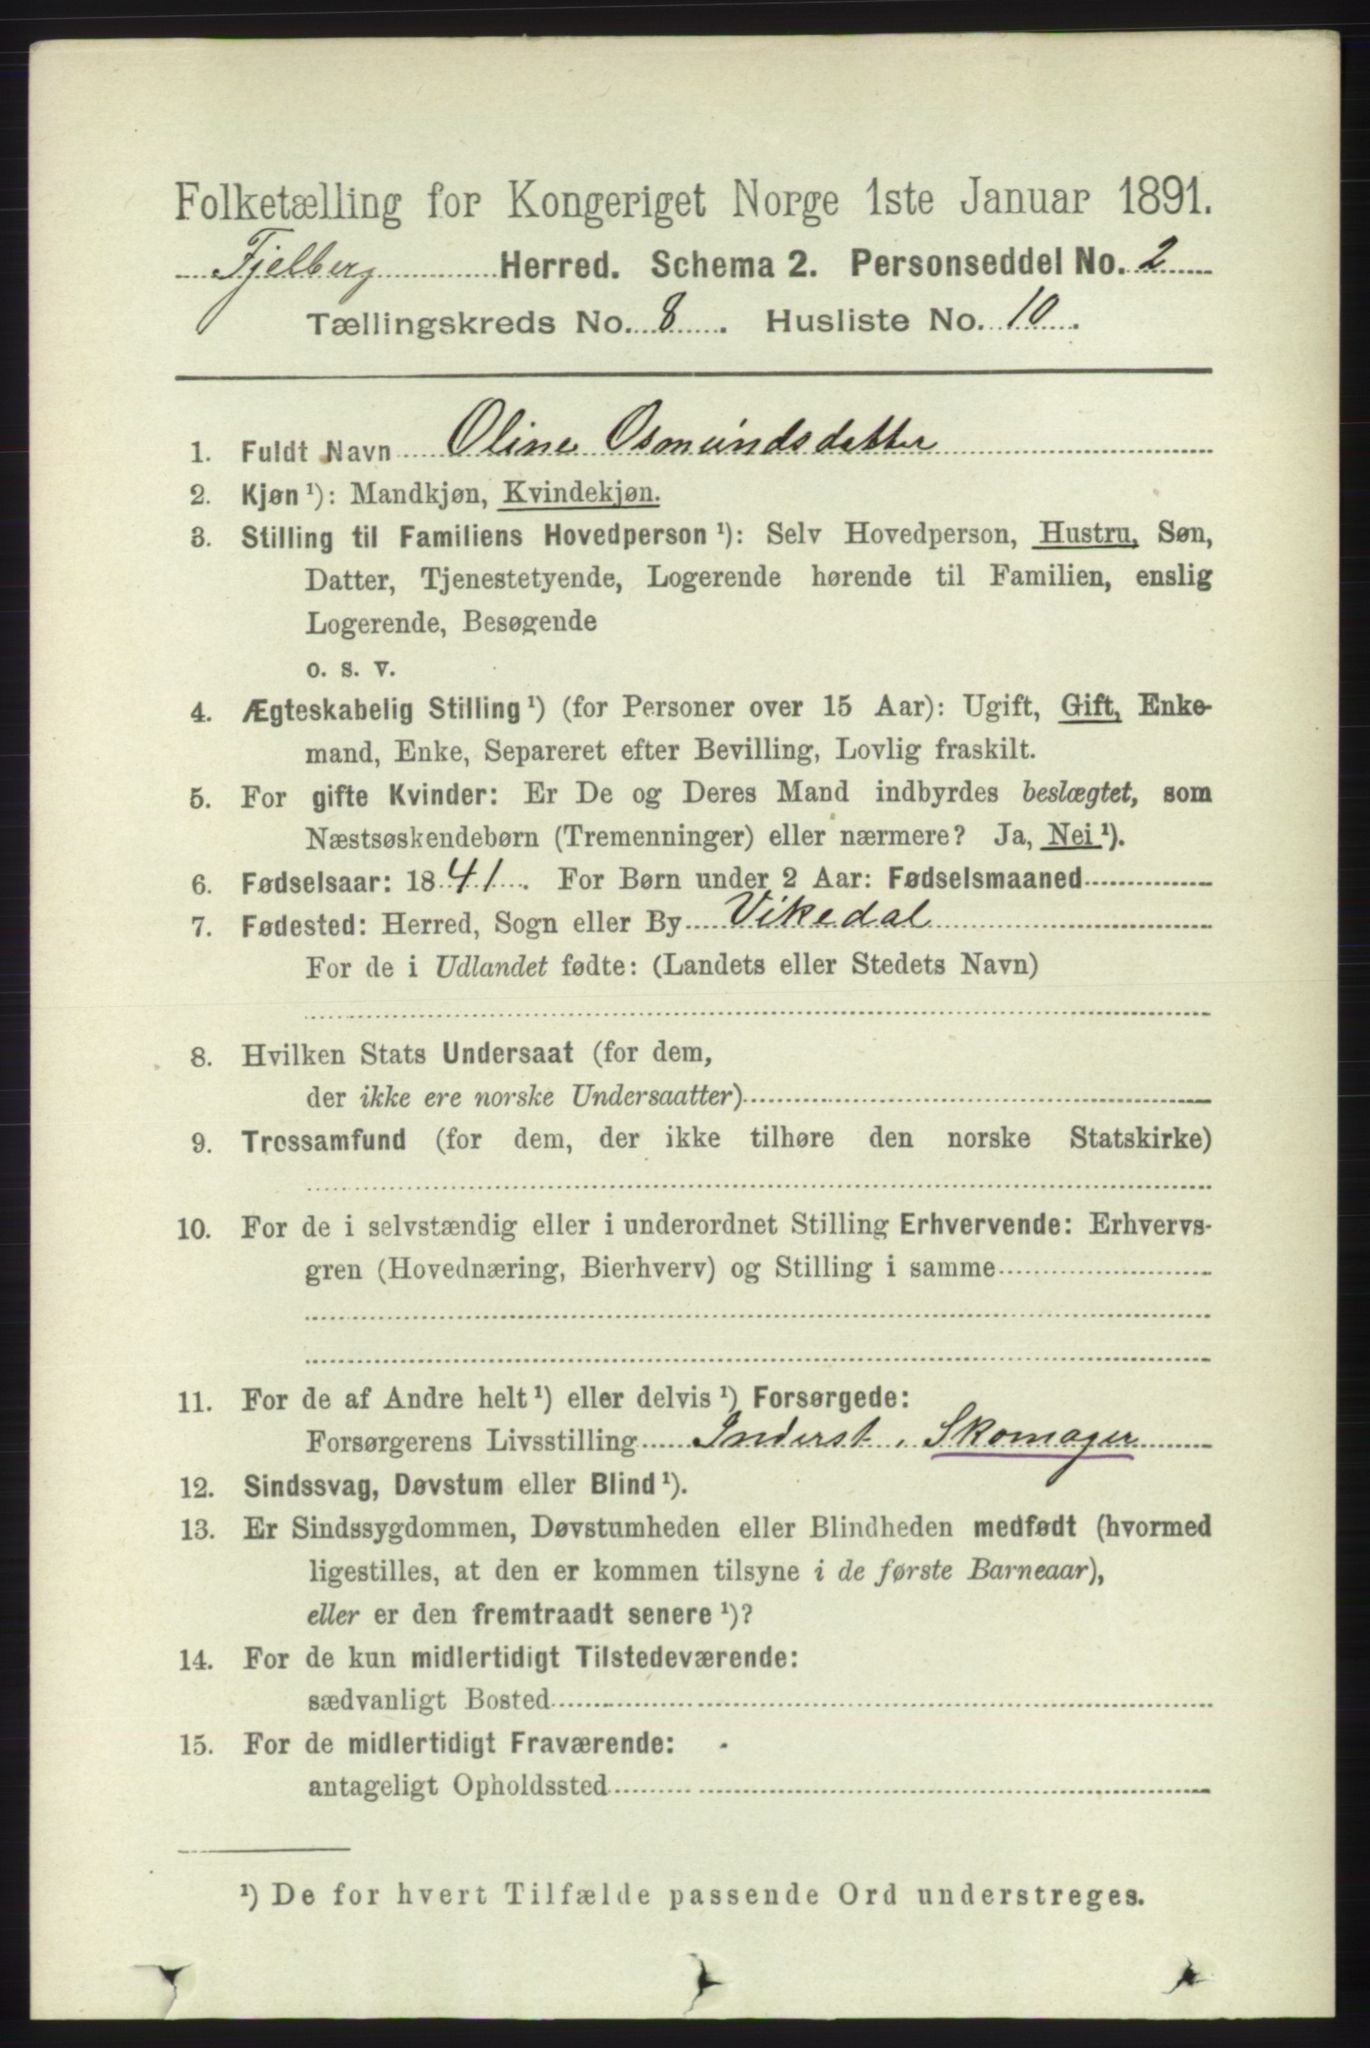 Folketælling for Kongeriget Norge 1ste Januar 1891.
Fjelberg Herred. Schema 2. Personseddel No. 2
Tællingskreds No. 8. Husliste No. 10.
1. Fuldt Navn Oline Osmundsdatter
2. Kjøn ¹): Mandkjøn, Kvindekjøn.
3. Stilling til Familiens Hovedperson ¹): Selv Hovedperson, Hustru, Søn,
Datter, Tjenestetyende, Logerende hørende til Familien, enslig
Logerende, Besøgende
o. s. v.
4. Ægteskabelig Stilling ¹) (for Personer over 15 Aar): Ugift, Gift, Enke-
mand, Enke, Separeret efter Bevilling, Lovlig fraskilt.
5. For gifte Kvinder: Er De og Deres Mand indbyrdes beslægtet, som
Næstsøskendebørn (Tremenninger) eller nærmere? Ja, Nei ¹).
6. Fødselsaar: 1841. For Børn under 2 Aar: Fødselsmaaned
7. Fødested: Herred, Sogn eller By Vikedal
For de i Udlandet fødte: (Landets eller Stedets Navn)
8. Hvilken Stats Undersaat (for dem,
der ikke ere norske Undersaatter)
9. Trossamfund (for dem, der ikke tilhøre den norske Statskirke)
10. For de i selvstændig eller i underordnet Stilling Erhvervende: Erhvervs-
gren (Hovednæring, Bierhverv) og Stilling i samme
11. For de af Andre helt ¹) eller delvis ¹) Forsørgede:
Forsørgerens Livsstilling Inderst, Skomager
12. Sindssvag, Døvstum eller Blind ¹).
13. Er Sindssygdommen, Døvstumheden eller Blindheden medfødt (hvormed
ligestilles, at den er kommen tilsyne i de første Barneaar),
eller er den fremtraadt senere ¹)?
14. For de kun midlertidigt Tilstedeværende:
sædvanligt Bosted
15. For de midlertidigt Fraværende:
antageligt Opholdssted
¹) De for hvert Tilfælde passende Ord understreges.